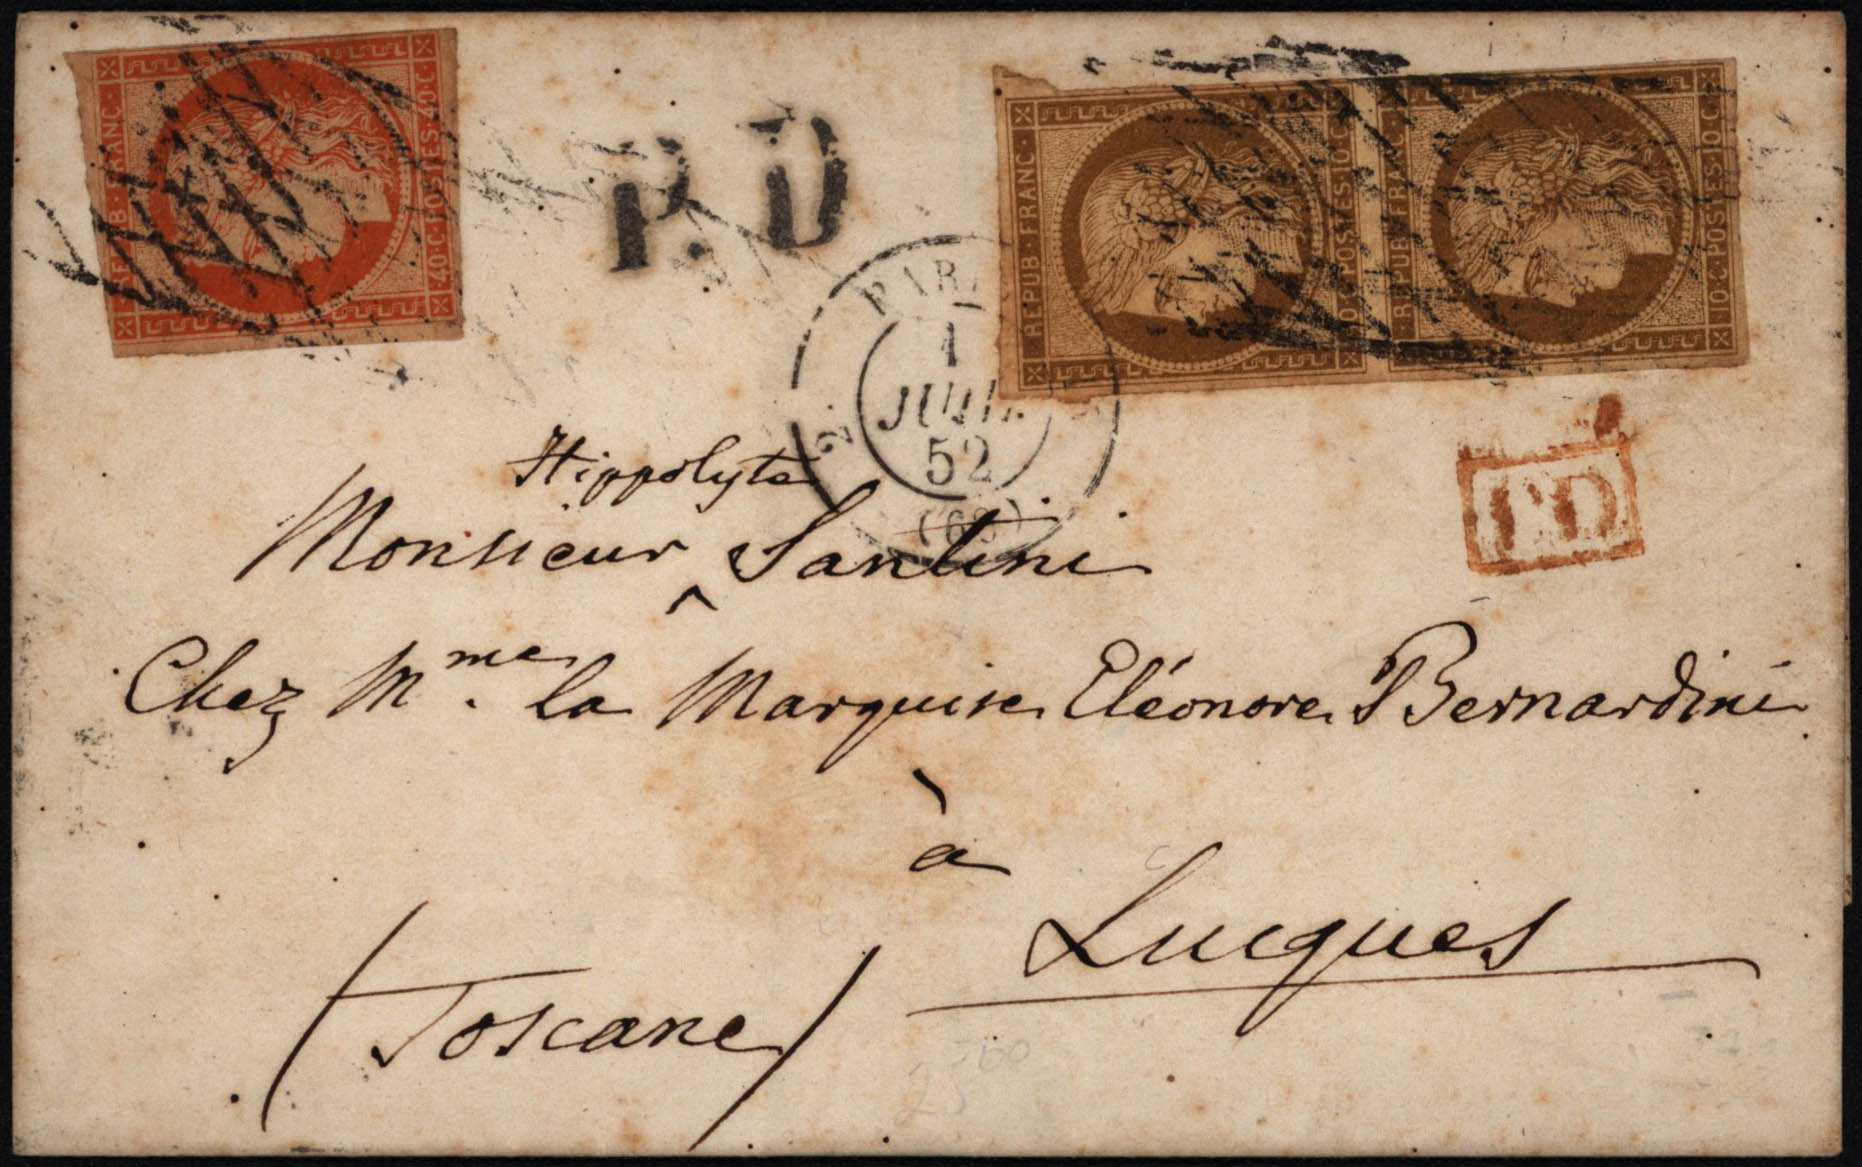 REPUB·FRANC·
·40·C·POSTES·40·C·
P.D
REPUB·FRANC·
10·C·POSTES·10·C·
·REPUB·FRANC·
10·C·POSTES·10·C·
PARIS
1
JUIL.
52
(60)
PD
Hippolyte
Monsieur ^ Santini
Chez Mme. la Marquise Eléonore Bernardini
à
Lucques
(Toscane)